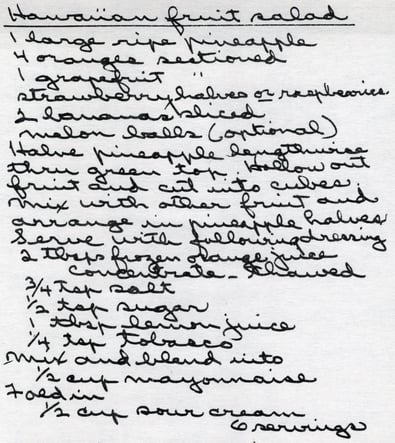 Hawaiian fruit salad
1 large ripe pineapple
4 oranges sectioned
1 grapefruit "
strawberry halves or raspberries
2 bananas sliced
melon balls (optional)
Halve pineapple lengthwise
thru green top. Hollow out
fruit and cut into cubes.
Mix with other fruit and
arrange in pineapple halves
Serve with following dressing
2 tbsps frozen orange juice
concentrate - thawed
3/4 tsp salt
1/2 tsp sugar
1 tbsp lemon juice
1/4 tsp tobasco
Mix and blend into
1/2 cup mayonnaise
Fold in
1/2 cup sour cream
6 servings